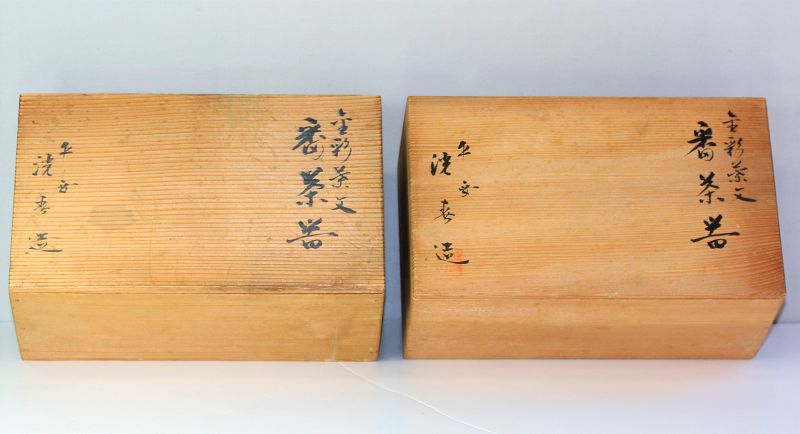 金彩葉文
番茶器
平安
洸春造
金彩葉文
番茶器
平安
洸春造